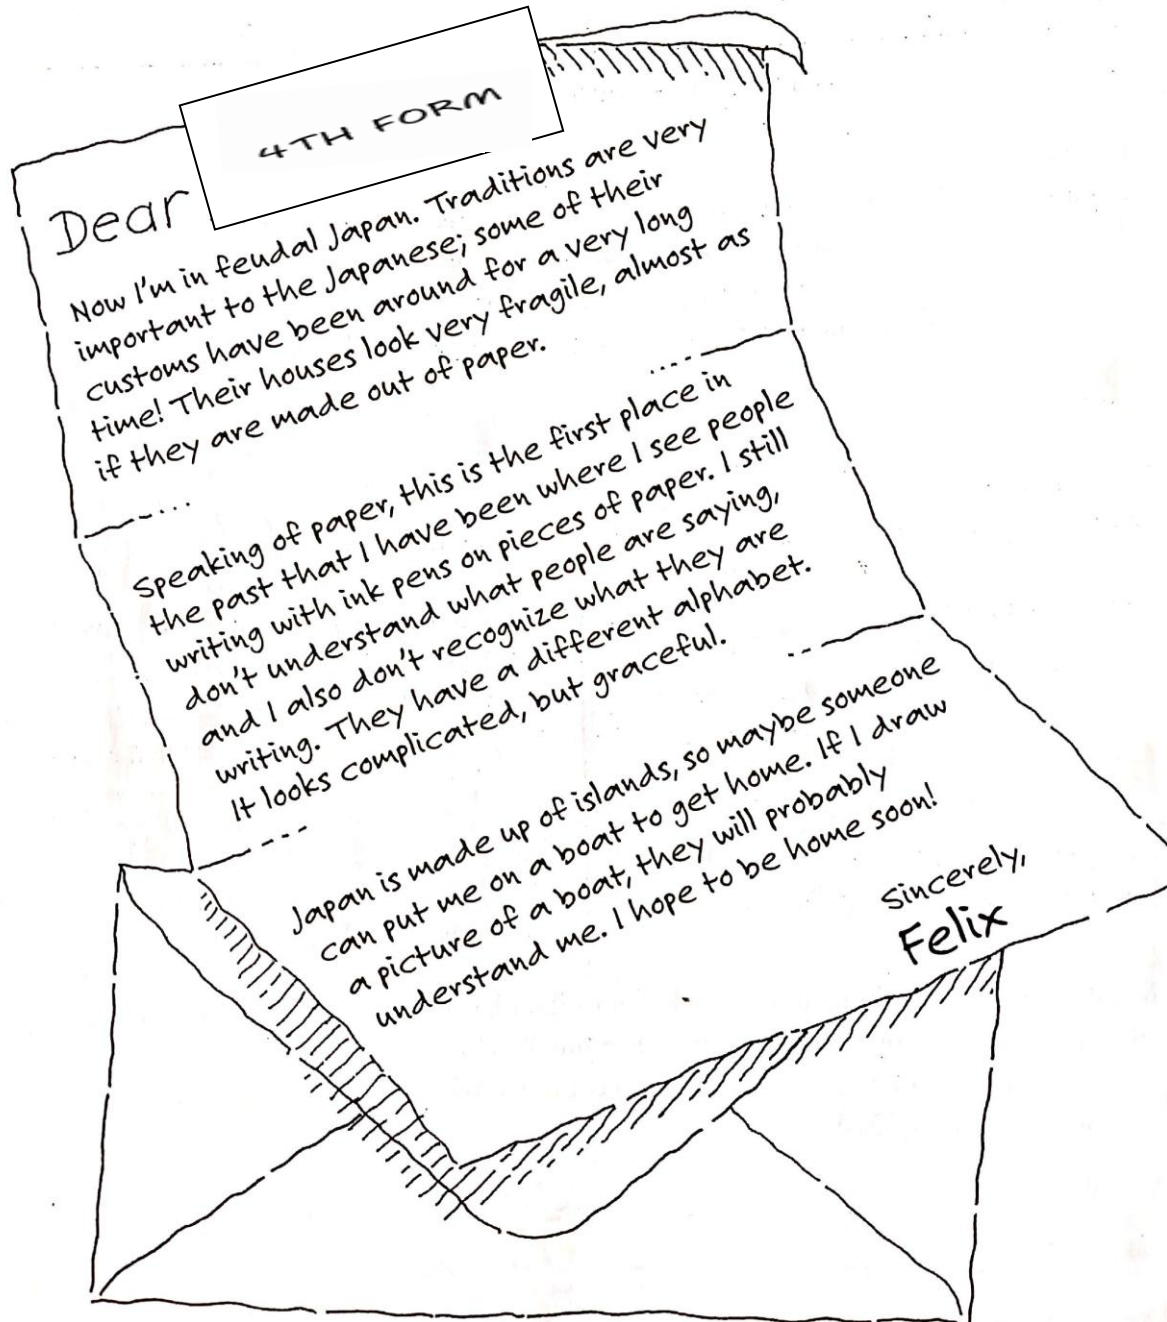 4TH FORM
Dear
Now I'm in feudal Japan. Traditions are very
important to the Japanese; some of their
customs have been around for a very long
time! Their houses look very fragile, almost as
if they are made out of paper.
Speaking of paper, this is the first place in
the past that I have been where I see people
writing with ink pens on pieces of paper. I still
don't understand what people are saying,
and I also don't recognize what they are
writing. They have a different alphabet.
It looks complicated, but graceful.
Japan is made up of islands, so maybe someone
can put me on a boat to get home. If I draw
a picture of a boat, they will probably
understand me. I hope to be home soon!
Sincerely,
Felix